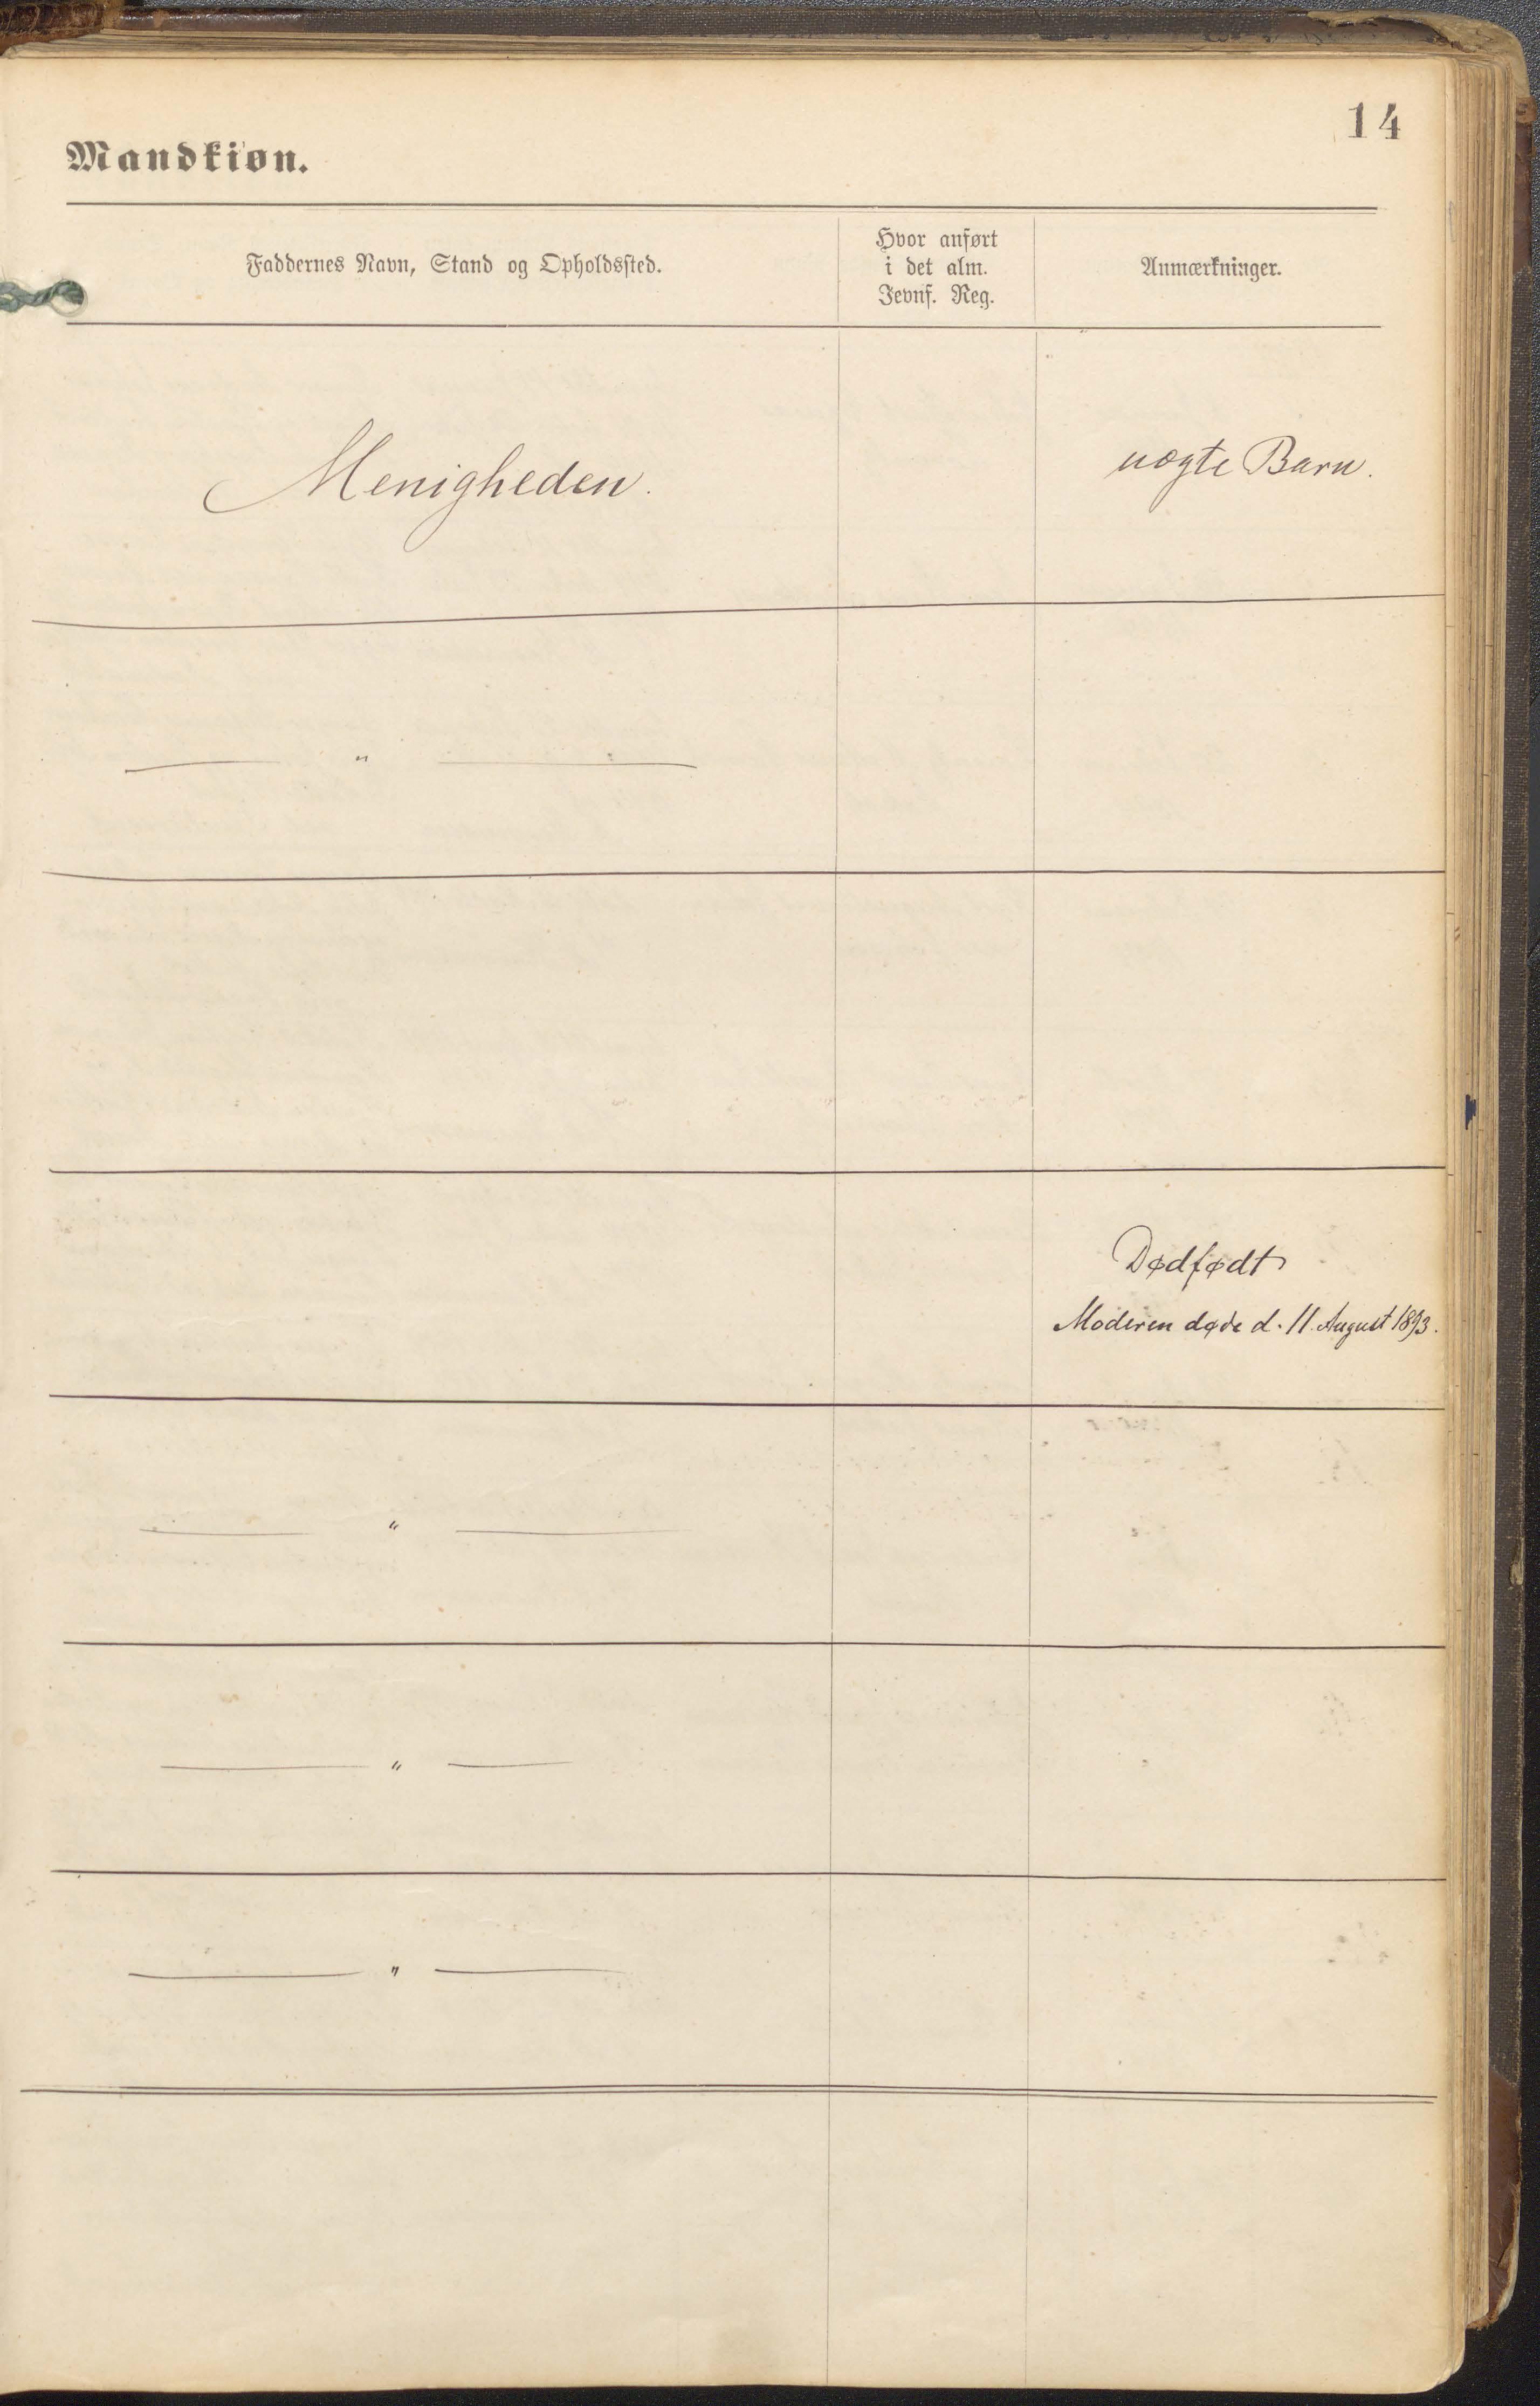 14
Mandkiøn.
Faddernes Navn, Stand og Opholdssted.
Hvor anført
i det alm.
Jevnf. Reg.
Anmærkninger.
Menigheden.
uægte Barn.
— " —
Dødfødt
Moderen døde d. 11. August 1893.
— " —
— " —
— " —